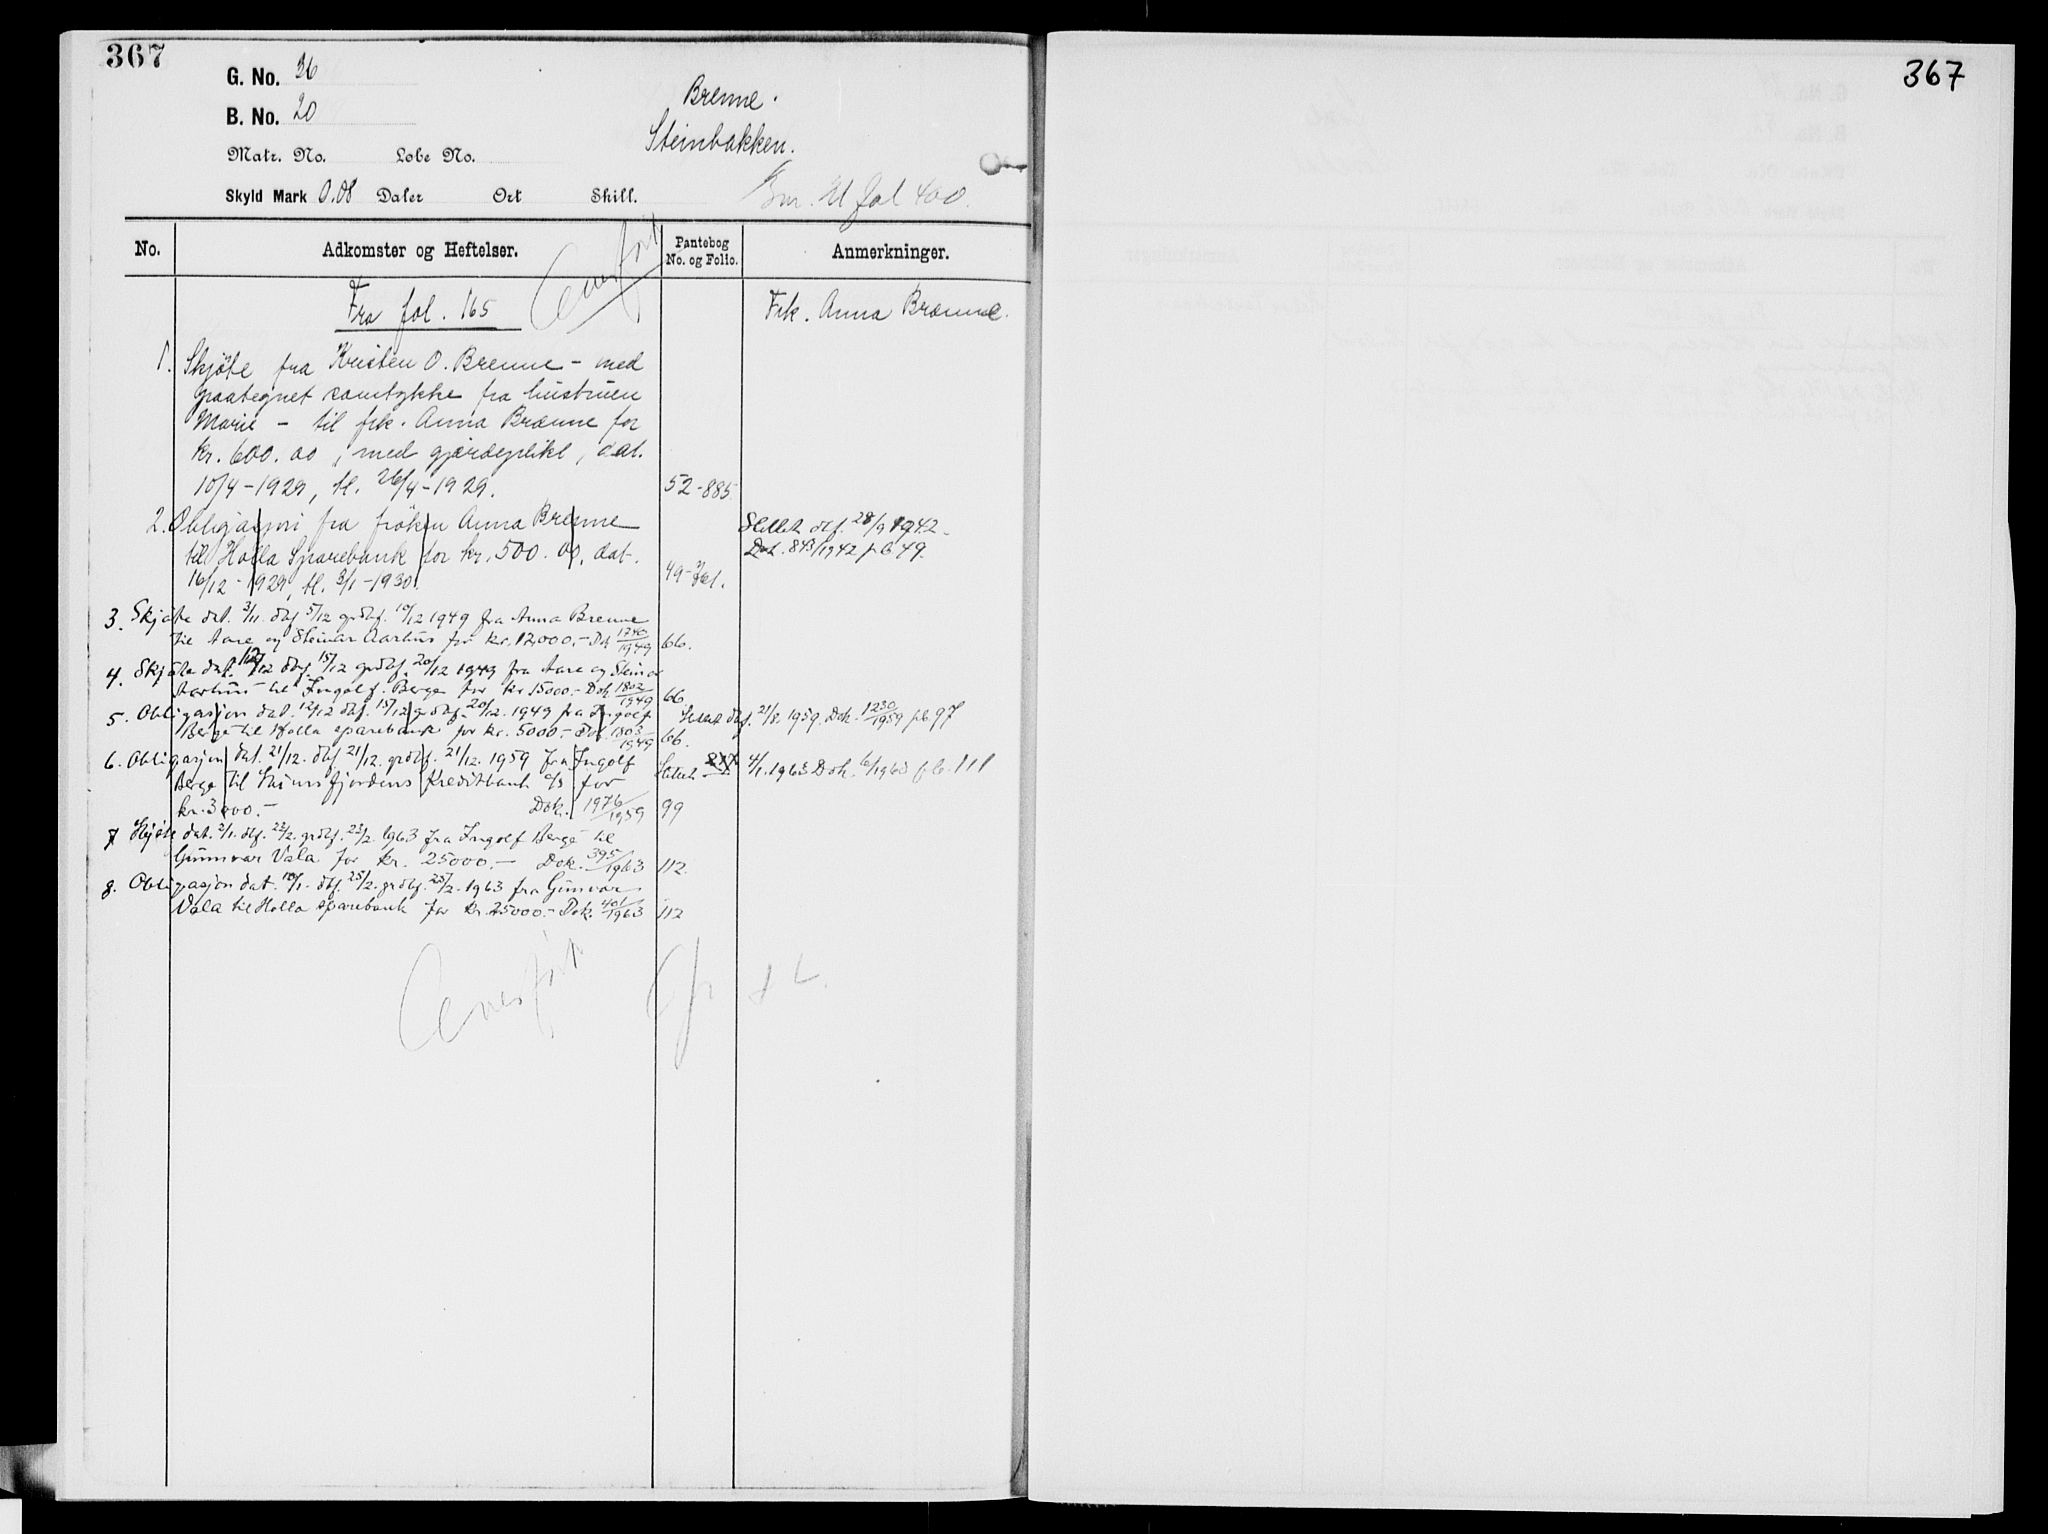 367
G. No. 36
B. No. 20
Matr. No. Løbe No.
Skyld Mark 0.08 Daler Ort Skill.
Brenne.
Steinbakken.
Bnr. 21 fol 400.
No. Adkomster og Heftelser. Pantebog No. og Folio. Anmerkninger.
Fra fol. 165
Frk. Anna Brenne.
1. Skjøte fra Kristen O. Brenne – med
paategnet samtykke fra hustruen
Marie – til frk. Anna Brenne for
kr. 600.00, med gjærdeplikt, dat.
10/4-1929, tl. 26/4-1929. 52-885.
2. Obligasjon fra frøken Anna Brenne
til Holla Sparebank for kr. 500.00, dat.
16/12-1929, tl. 3/1-1930. 49-
Slettet dbf. 28/9 1942.
Dok. 843/1942 pb 49.
3. Skjøte dat. 3/11. dbf 5/12 grdbf. 10/12 1949 fra Anna Brenne
til Aare og Steinar Aarhus for kr. 12000.- Dok 1740/1949 66.
4. Skjøte dat. 12/12 dbf. 15/12 grdbf. 20/12 1949 fra Aare og Steinar
Aarhus til Ingolf Berge for kr 15000.- Dok 1802/1949 66
5. Obligasjon dat. 12/12 dbf. 15/12 grdbf. 20/12. 1949 fra Ingolf
Berge til Holla sparebank for kr. 5000.- Dok. 1803/1949 66.
Slettet dbf. 21/8. 1959. Dok. 1230/1959 pb. 97
6. Obligasjon dat. 21/12. dbf 21/12. grdbf. 21/12. 1959 fra Ingolf
Berge til Skiensfjordens Kreditbank a/s for
kr. 3000.- Dok. 1976/1959 99
Slettet 4/1. 1963 Dok. 6/1963 pb. 111
7 Skjøte dat. 2/1. dbf. 22/2. grdbf. 23/2. 1963 fra Ingolf Berge til
Gunnvar Vala for kr. 25000.- Dok. 395/1963 112.
8. Obligasjon dat. 18/1. dbf. 25/2. grdbf. 25/2. 1963 fra Gunvar
Vala til Holla sparebank for kr. 25000.- Dok. 401/1963 112
367